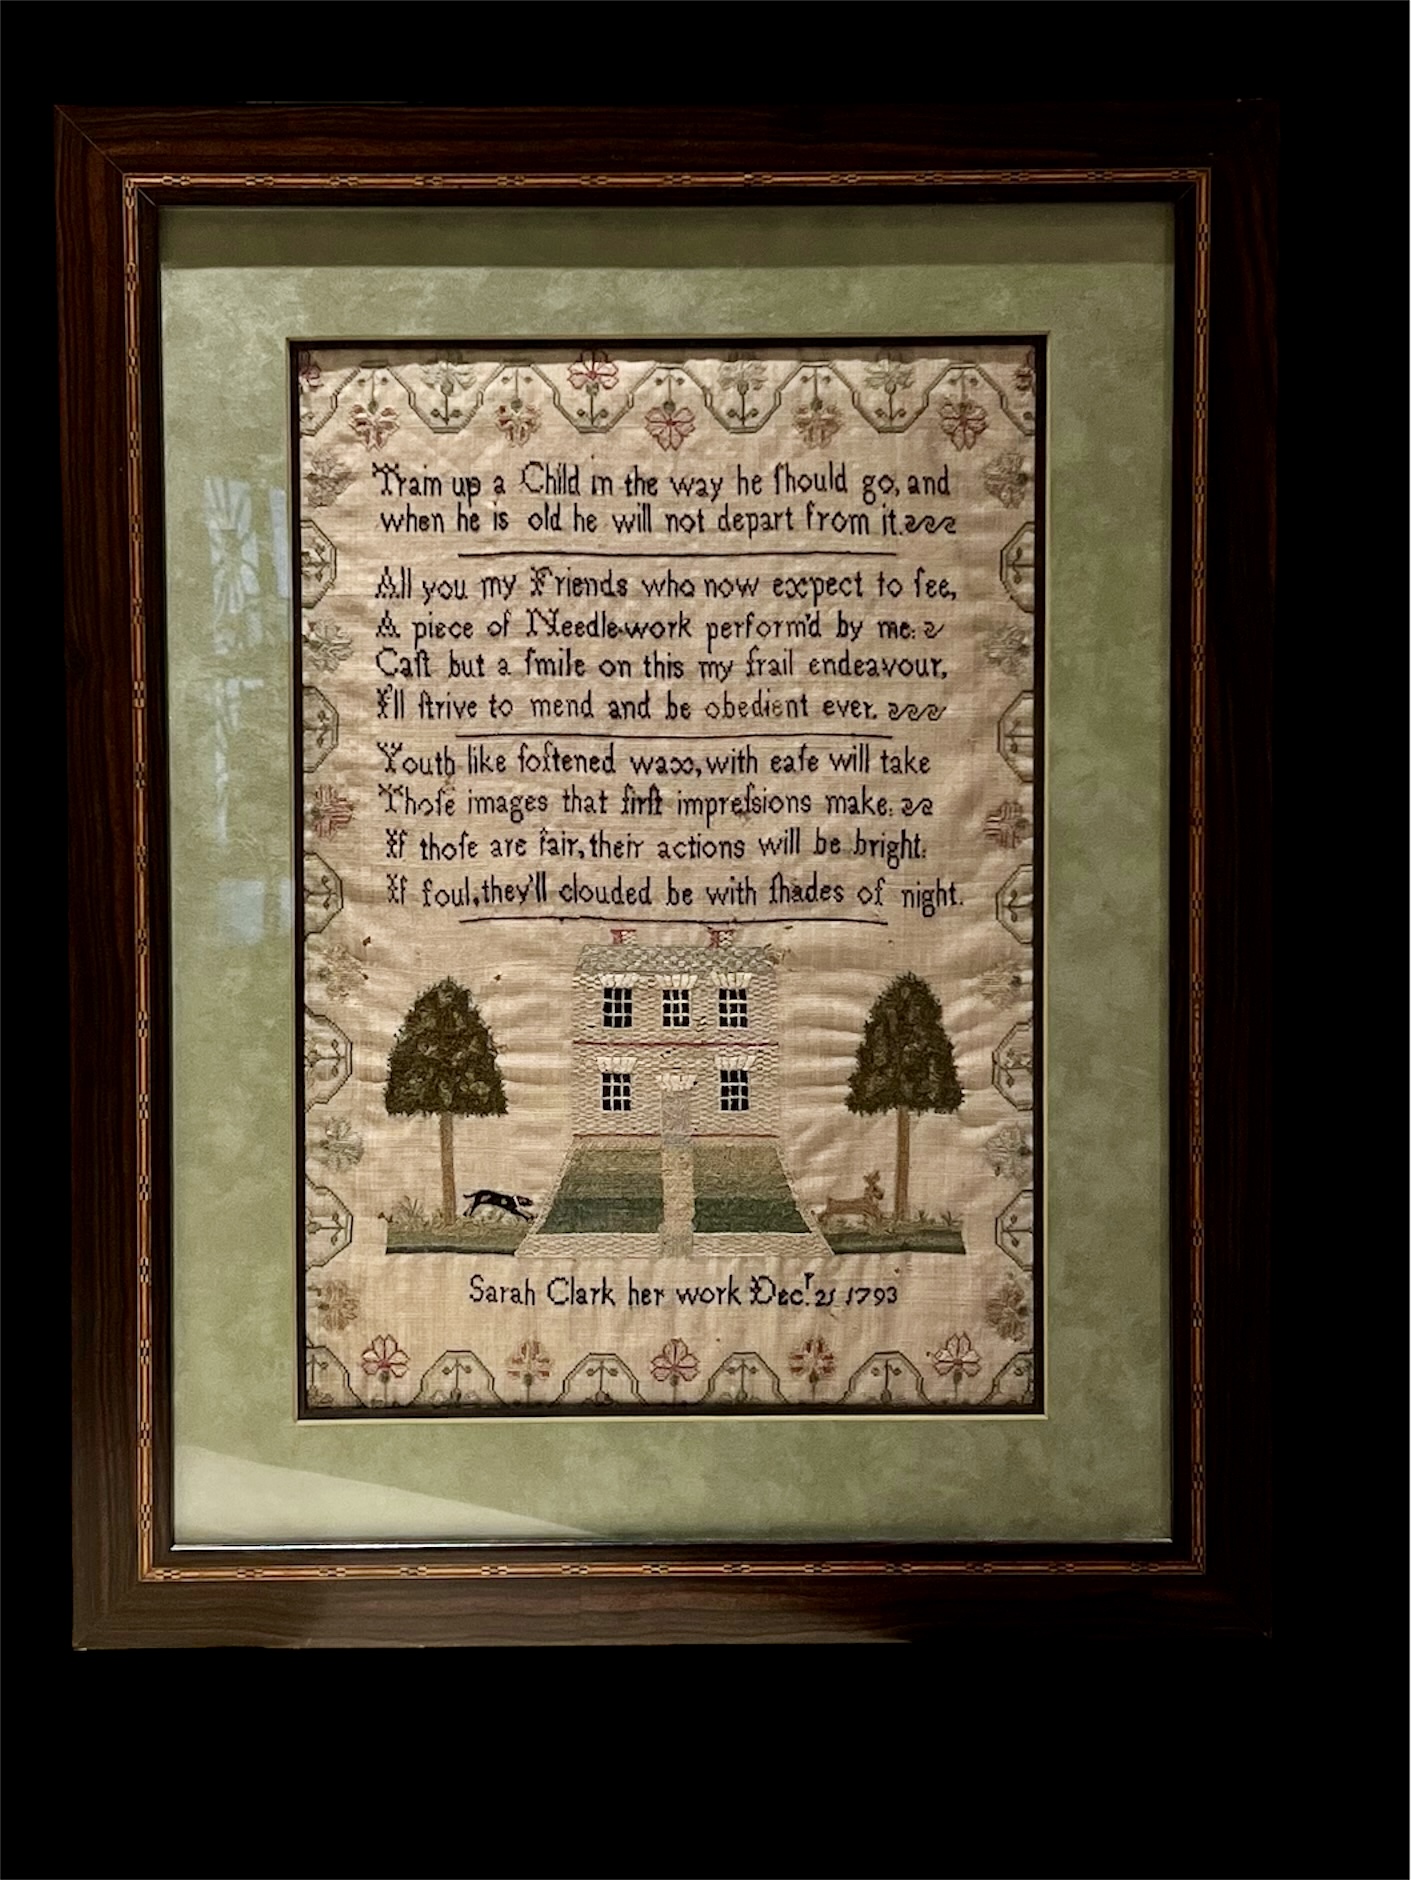 Train up a Child in the way he ſhould go, and
when he is old he will not depart from it.
All you my Friends who now expect to ſee,
A piece of Needle-work perform'd by me:
Caſt but a ſmile on this my frail endeavour,
I'll ſtrive to mend and be obedient ever.
Youth like ſoftened wax, with eaſe will take
Thoſe images that firſt impreſsions make:
If thoſe are fair, their actions will be bright:
If foul, they'll clouded be with ſhades of night.
Sarah Clark her work Decr. 21 1793